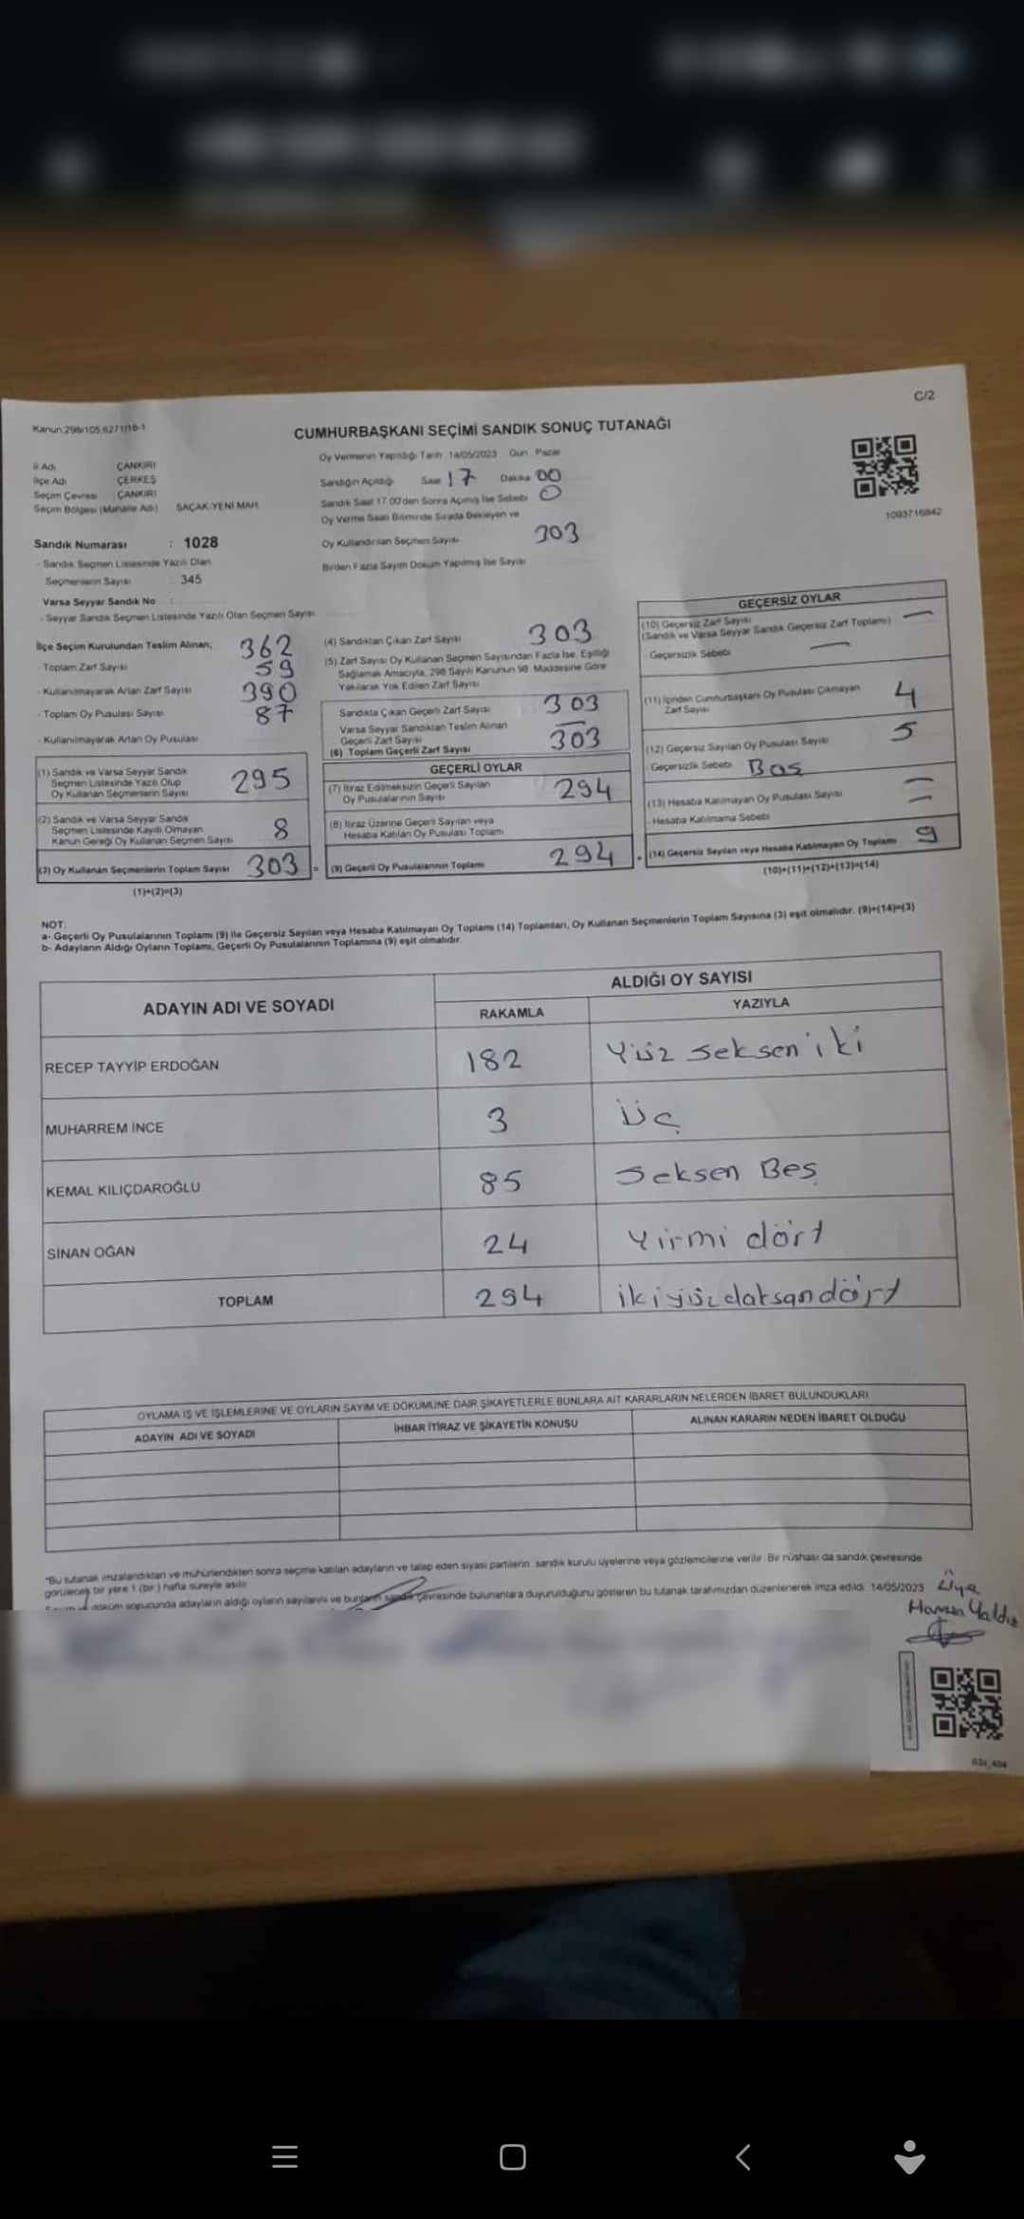 C/2
Kanun:298/105,6271/18-1
CUMHURBAŞKANI SEÇİMİ SANDIK SONUÇ TUTANAĞI
İl Adı ÇANKIRI
İlçe Adı ÇERKEŞ
Seçim Çevresi ÇANKIRI
Seçim Bölgesi (Mahalle Adı) SAÇAK YENİ MAH.
Oy Vermenin Yapıldığı Tarih 14/05/2023 Gün Pazar
Sandığın Açıldığı Saat 17 Dakika 00
Sandık Saat 17.00'den Sonra Açılmış İse Sebebi 0
Oy Verme Saati Bitiminde Sırada Bekleyen ve
Oy Kullandırılan Seçmen Sayısı 303
Birden Fazla Sayım Döküm Yapılmış İse Sayısı
1093716842
Sandık Numarası : 1028
- Sandık Seçmen Listesinde Yazılı Olan
Seçmenlerin Sayısı : 345
Varsa Seyyar Sandık No :
- Seyyar Sandık Seçmen Listesinde Yazılı Olan Seçmen Sayısı
İlçe Seçim Kurulundan Teslim Alınan; 362
- Toplam Zarf Sayısı 59
- Kullanılmayarak Artan Zarf Sayısı 390
- Toplam Oy Pusulası Sayısı 87
- Kullanılmayarak Artan Oy Pusulası
(1) Sandık ve Varsa Seyyar Sandık
Seçmen Listesinde Yazılı Olup
Oy Kullanan Seçmenlerin Sayısı 295
(2) Sandık ve Varsa Seyyar Sandık
Seçmen Listesinde Kayıtlı Olmayan
Kanun Gereği Oy Kullanan Seçmen Sayısı 8
(3) Oy Kullanan Seçmenlerin Toplam Sayısı 303 =
(1)+(2)=(3)
(4) Sandıktan Çıkan Zarf Sayısı 303
(5) Zarf Sayısı Oy Kullanan Seçmen Sayısından Fazla İse, Eşitliği
Sağlamak Amacıyla, 298 Sayılı Kanunun 98. Maddesine Göre
Yakılarak Yok Edilen Zarf Sayısı
Sandıkta Çıkan Geçerli Zarf Sayısı 303
Varsa Seyyar Sandıktan Teslim Alınan
Geçerli Zarf Sayısı —
(6) Toplam Geçerli Zarf Sayısı 303
GEÇERLİ OYLAR
(7) İtiraz Edilmeksizin Geçerli Sayılan
Oy Pusulalarının Sayısı 294
(8) İtiraz Üzerine Geçerli Sayılan veya
Hesaba Katılan Oy Pusulası Toplamı
(9) Geçerli Oy Pusulalarının Toplamı 294 +
GEÇERSİZ OYLAR
(10) Geçersiz Zarf Sayısı
(Sandık ve Varsa Seyyar Sandık Geçersiz Zarf Toplamı) —
Geçersizlik Sebebi —
(11) İçinden Cumhurbaşkanı Oy Pusulası Çıkmayan
Zarf Sayısı 4
(12) Geçersiz Sayılan Oy Pusulası Sayısı 5
Geçersizlik Sebebi Boş
(13) Hesaba Katılmayan Oy Pusulası Sayısı —
- Hesaba Katılmama Sebebi —
(14) Geçersiz Sayılan veya Hesaba Katılmayan Oy Toplamı 9
(10)+(11)+(12)+(13)=(14)
NOT:
a- Geçerli Oy Pusulalarının Toplamı (9) ile Geçersiz Sayılan veya Hesaba Katılmayan Oy Toplamı (14) Toplamları, Oy Kullanan Seçmenlerin Toplam Sayısına (3) eşit olmalıdır. (9)+(14)=(3)
b- Adayların Aldığı Oyların Toplamı, Geçerli Oy Pusulalarının Toplamına (9) eşit olmalıdır.
ADAYIN ADI VE SOYADI
ALDIĞI OY SAYISI
RAKAMLA YAZIYLA
RECEP TAYYİP ERDOĞAN 182 Yüz seksen iki
MUHARREM İNCE 3 Üç
KEMAL KILIÇDAROĞLU 85 Seksen Beş
SİNAN OĞAN 24 Yirmi dört
TOPLAM 294 ikiyüz datsan dört
OYLAMA İŞ VE İŞLEMLERİNE VE OYLARIN SAYIM VE DÖKÜMÜNE DAİR ŞİKAYETLERLE BUNLARA AİT KARARLARIN NELERDEN İBARET BULUNDUKLARI
ADAYIN ADI VE SOYADI İHBAR İTİRAZ VE ŞİKAYETİN KONUSU ALINAN KARARIN NEDEN İBARET OLDUĞU
*Bu tutanak imzalandıktan ve mühürlendikten sonra seçime katılan adayların ve talep eden siyasi partilerin sandık kurulu üyelerine veya gözlemcilerine verilir. Bir nüshası da sandık çevresinde
görülecek bir yere 1 (bir) hafta süreyle asılır.
döküm sonucunda adayların aldığı oyların sayılarını ve bunların sandık çevresinde bulunanlara duyurulduğunu gösteren bu tutanak tarafımızdan düzenlenerek imza edildi. 14/05/2023
Üye